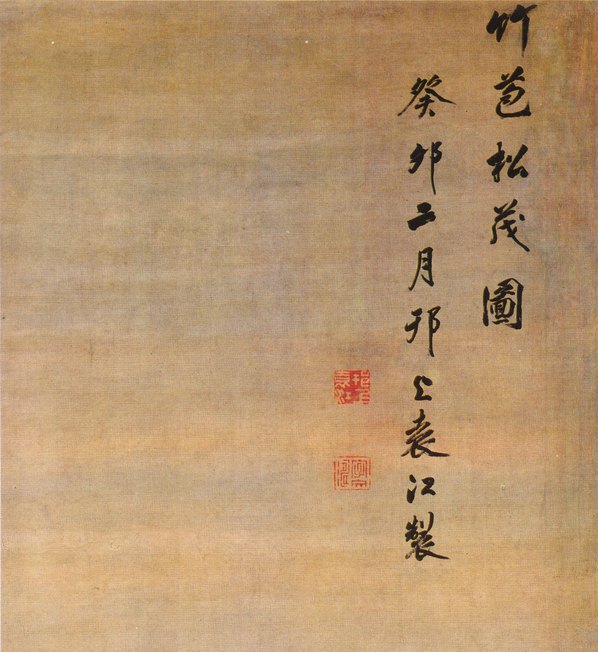 竹苞松茂圖
癸卯二月邗上袁江製